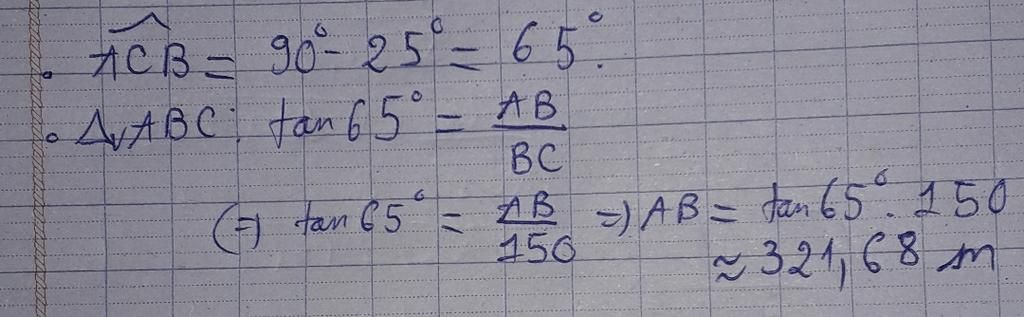 • ACB = 90° - 25° = 65°.
• ΔvABC: tan65° = AB/BC
(=) tan65° = AB/150 =) AB = tan65°. 150
≈ 321,68 m